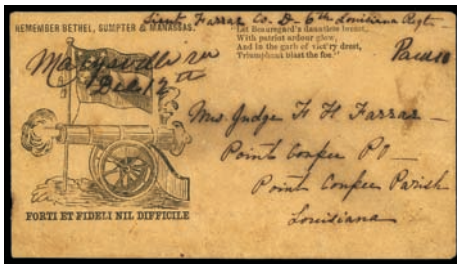 Lieut Farrar Co. D- 6th Louisiana Regt-
REMEMBER BETHEL, SUMPTER & MANASSAS.
"Let Beauregard's dauntless breast,
With patriot ardour glow,
And in the garb of vict'ry drest,
Triumphant blast the foe."
Paid 10
Dec 12th
Mrs. Judge F H Farrar -
Point Coupee PO -
Point Coupee Parish
Louisiana
FORTI ET FIDELI NIL DIFFICILE